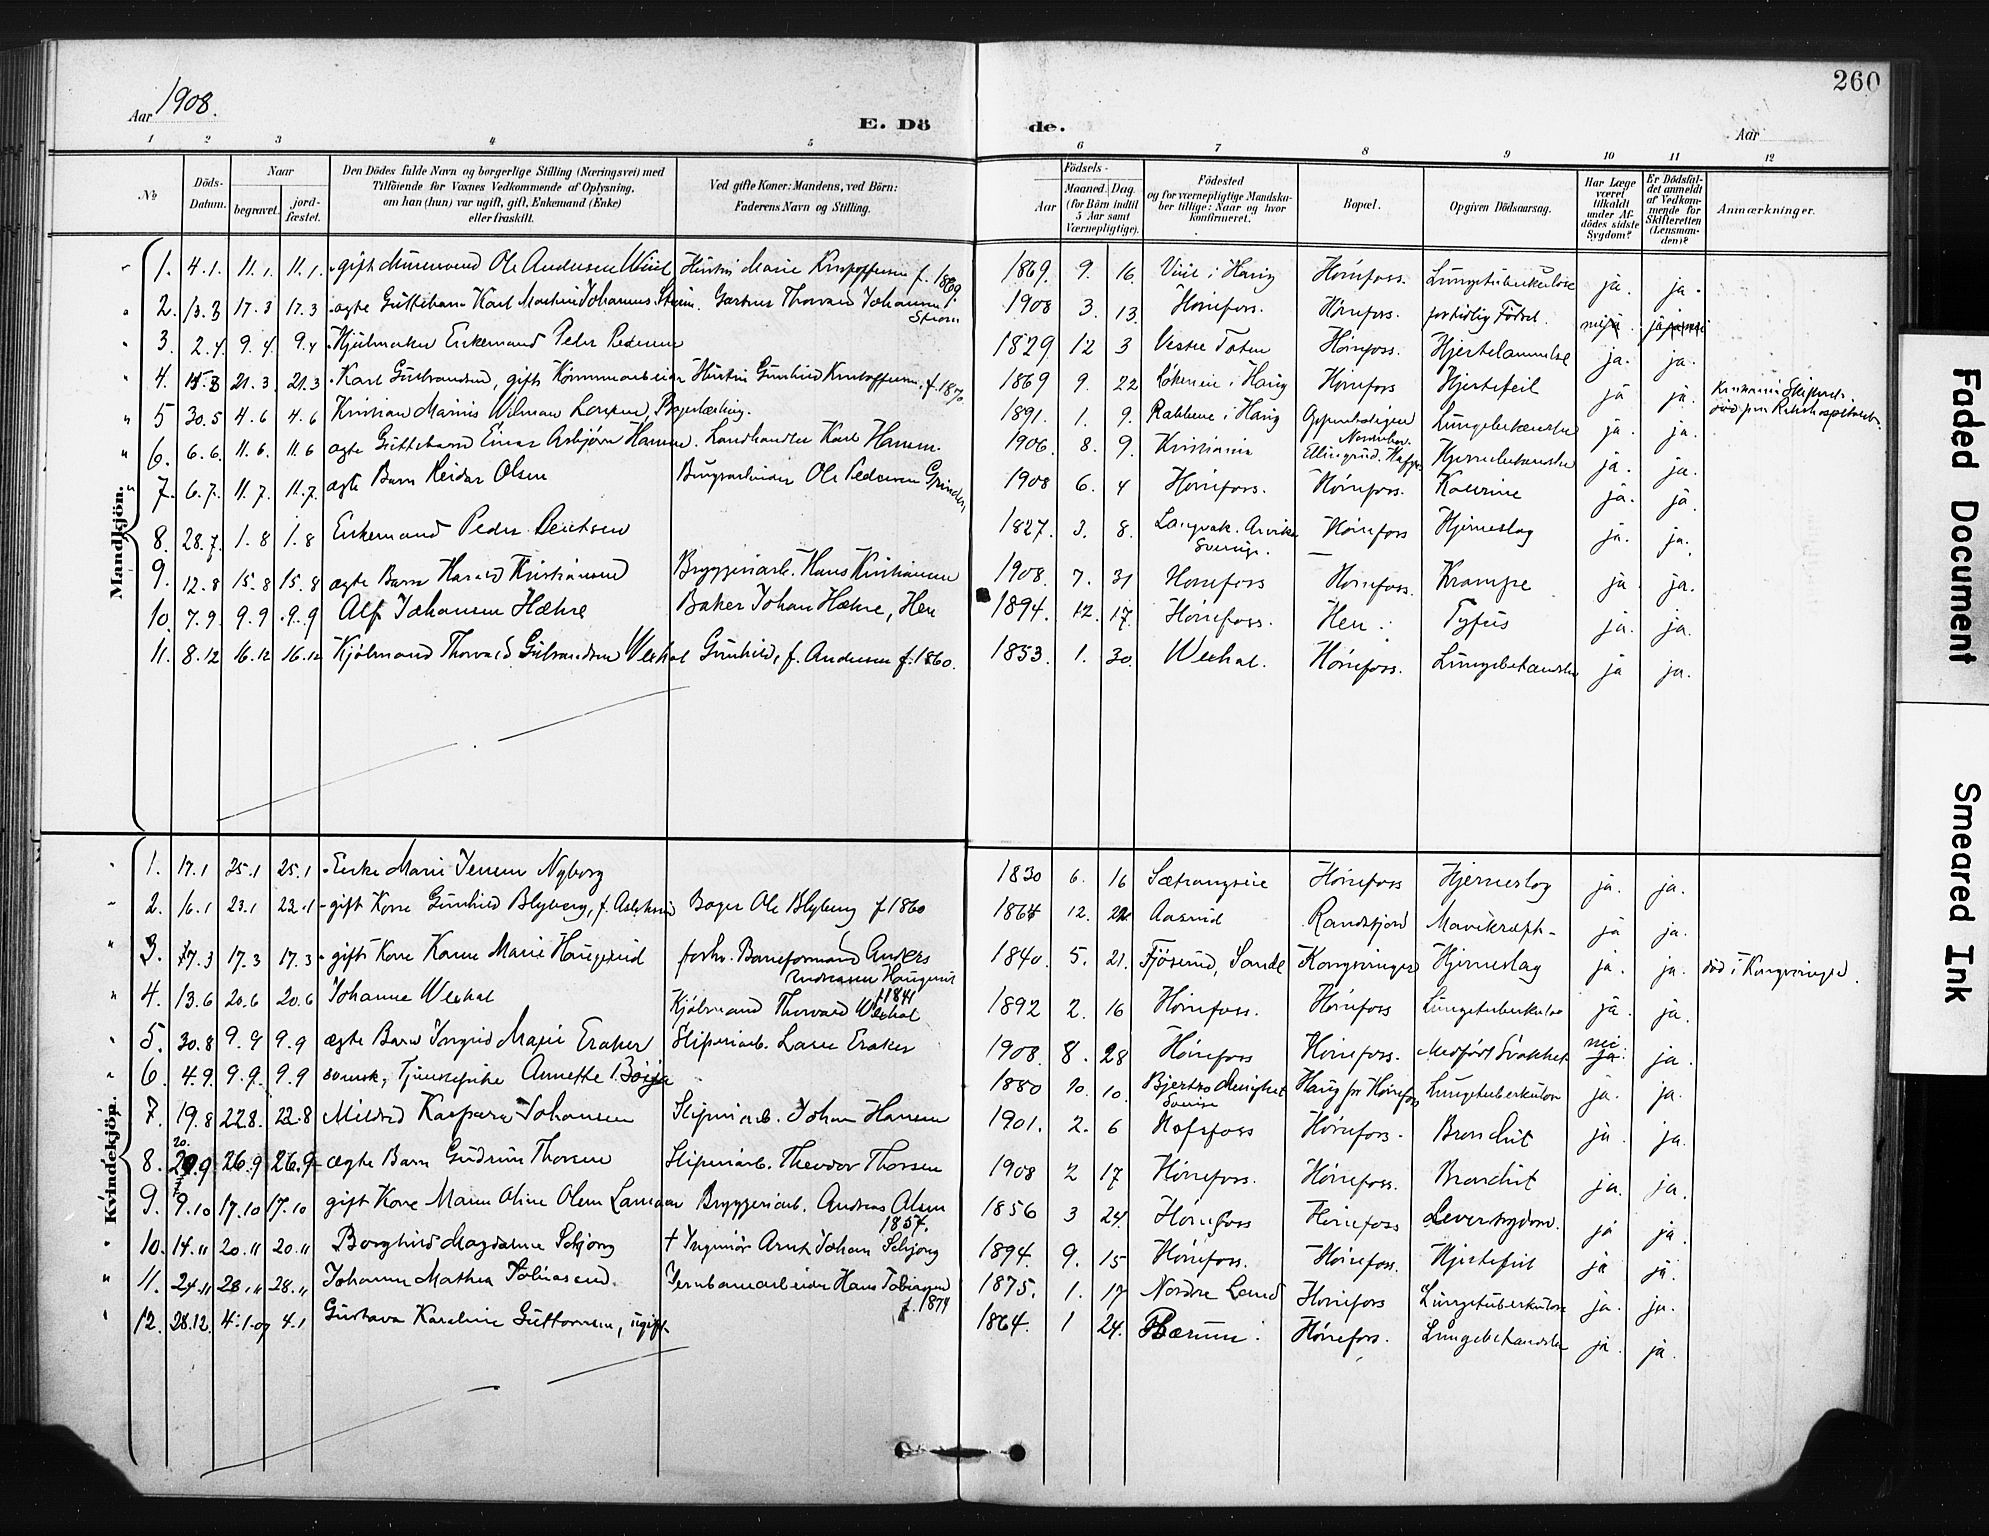 260
Aar 1908.
E. Döde.
Aar
1 2 3 4 5 6 7 8 9 10 11 12
No
Döds-Datum.
Naar
begravet.
jord-fæstet.
Den Dödes fulde Navn og borgerlige Stilling (Næringsvei) med
Tilföiende for Voxnes Vedkommende af Oplysning,
om han (hun) var ugift, gift, Enkemand (Enke)
eller fraskilt.
Ved gifte Koner: Mandens, ved Börn:
Faderens Navn og Stilling.
Födsels-
Aar
Maaned. Dag.
(for Börn indtil
5 Aar samt
Værnepligtige).
Födested
og for værnepligtige Mandska-
ber tillige: Naar og hvor
konfirmeret.
Bopæl.
Opgiven Dödsaarsag.
Har Læge
været
tilkaldt
under Af-
dödes sidste
Sygdom?
Er Dödsfal-
det anmeldt
af Vedkom-
mende for
Skifteretten
(Lensman-
den)?
Anmærkninger.
Mandkjön.
1. 4.1. 11.1. 11.1. gift Murermand Ole Andersen Hustru Marie f. 1869. 1869. 9. 16. i Haug Hønefoss. Lungetuberkulose ja. ja.
2. 13.3 17.3 17.3 ægte Guttebarn Karl Martin Johannes Gartner Thorvald Johannes 1908 3. 13. Hønefoss. Hønefoss. for tidlig Fødsel.
3. 2.4 9.4 9.4 Hjulmaker Enkemand Peder Pedersen 1829. 12 3 Vestre Toten Hønefoss. Hjertelammelse ja. ja.
4. 21.3. 21.3 Karl Gulbrandsen, gift Hustru Gunhild Kristoffersen, f. 1870. 1869 9. 22 i Haug Hønefoss Hjertefeil ja ja.
død paa Rikshospitalet.
5 30.5 4.6 4.6 Kristian 1891. 1. 9. i Haug Lungebetændelse ja. ja.
6. 6.6. 11.6. 11.6 ægte Guttebarn Einar Asbjørn Hansen. Landhandler Karl Hansen. 1906. 8. 9. Kristiania Hjernebetændelse ja. ja.
7. 6.7. 11.7. 11.7. ægte Barn Reidar Olsen Ole Pedersen 1908 6. 4 Hønefoss. Hønefoss. Kolerine ja. ja
8. 28.7. 1.8 1.8 Enkemand Peder Bentsen 1827. 3. 8. Arvika Sverige. Hønefoss Hjerneslag ja. ja.
9. 12.8 15.8 15.8 ægte Barn Harald Kristiansen Bryggeriarb. Hans Kristiansen 1908. 7. 31 Hønefoss Hønefoss. Krampe ja ja.
10. 7.9. 9.9 9.9 Alf Johansen Hæhre Baker Johan Hæhre, Hen 1894. 12. 17. Hønefoss. Hen. Tyfus ja. ja.
11. 8.12 16.12 16.12 Kjølmand Thorvald Gulbrandsen Wexhal Gunhild, f. Andersen f. 1860. 1853. 1. 30. Wexhal. Hønefoss. Lungebetændelse ja ja.
Kvindekjön.
1. 17.1 25.1 25.1 Enke Marie Jensen Nyborg 1830 6. 16 Hønefoss Hjerneslag ja. ja.
2. 16.1 23.1 gift Kone Gunhild Blyberg, f. Ole Blyberg f 1860 1864 12. Aasmid Randsfjord Mavekræft ja ja.
3. 17.3 17.3 17.3 gift Kone Karen Marie Haugerud forhv. Baneformand Anders Andreassen Haugerud f. 1841 1840. 5. 21. Sande Kongsvinger Hjerneslag ja. ja. død i Kongsvinger.
4. 13.6 20.6 20.6 Johanne Wexhal Kjølmand Thorvald Wexhal 1892 2. 16 Hønefoss. Hønefoss Lungetuberkulose ja. ja.
5. 30.8 9.9 9.9 ægte Barn Ingrid Marie Eraker Sliperiarb. Lars Eraker 1908. 8. 28 Hønefoss Hønefoss. Medfødt Svakhet nei ja. ja
6. 4.9. 9.9. 9.9 svensk, Tjenestepike Annette 1880 10. 10. Haug pr Hønefoss Lungetuberkulose ja. ja.
7. 19.8 22.8. 22.8 Mildrid Kaspara Johansen Sliperiarb. Johan Hansen 1901. 2. 6 Hofsfoss Hønefoss. Bronchit ja. ja.
8. 26.9 26.9 ægte Barn Gudrun Thorsen Sliperiarb. Theodor Thorsen 1908 2 17 Hønefoss. Hønefoss. Bronchit ja. ja.
9. 9.10 17.10 17.10 gift Kone Maren Oline Olsen Bryggeriarb. Andreas Olsen 1857. 1856 3 24. Hønefoss Hønefoss Leversygdom. ja ja.
10. 14.11 20.11 20.11 Borghild Magdalena Schjong † Ingeniør Arnt Johan Schjong 1894. 9. 15 Hønefoss. Hønefoss. Hjertefeil ja ja.
11. 24.11 28.11 28.11 Johanne Mathea Tobiasen. Jernbanearbeider Hans Tobiasen f. 1874 1875. 1. 17 Nordre Land Hønefoss Lungetuberkulose ja. ja.
12. 28.12. 4.1.09 4.1 Gustava Karoline Guttormsen, ugift 1864. 1 24. Bærum. Hønefoss. Lungebetændelse ja. ja.
Faded Document
Smeared Ink